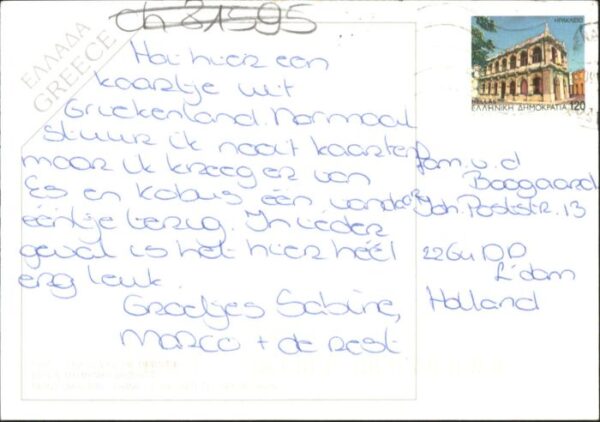 ch 31595
ΕΛΛΑΔΑ
GREECE
Hoi hier een
kaartje uit
Griekenland. Normaal
stuur ik nooit kaarten
maar ik kreeg er van
Es en Kobus één vandaar
ééntje terug. In ieder
geval is het hier héél
erg leuk.
Groetjes Sabine,
Marco + de rest
ΗΡΑΚΛΕΙΟ
ΕΛΛΗΝΙΚΗ ΔΗΜΟΚΡΑΤΙΑ 120
fam. v.d
Boogaard
Joh. Poststr. 13
DD
L'dam
Holland